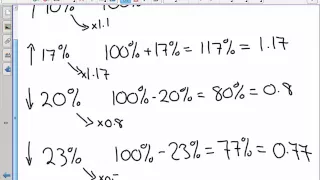 ↑ 10%
x1.1
↑ 17% 100% + 17% = 117% = 1.17
x1.17
↓ 20% 100% - 20% = 80% = 0.8
x0.8
↓ 23% 100% - 23% = 77% = 0.77